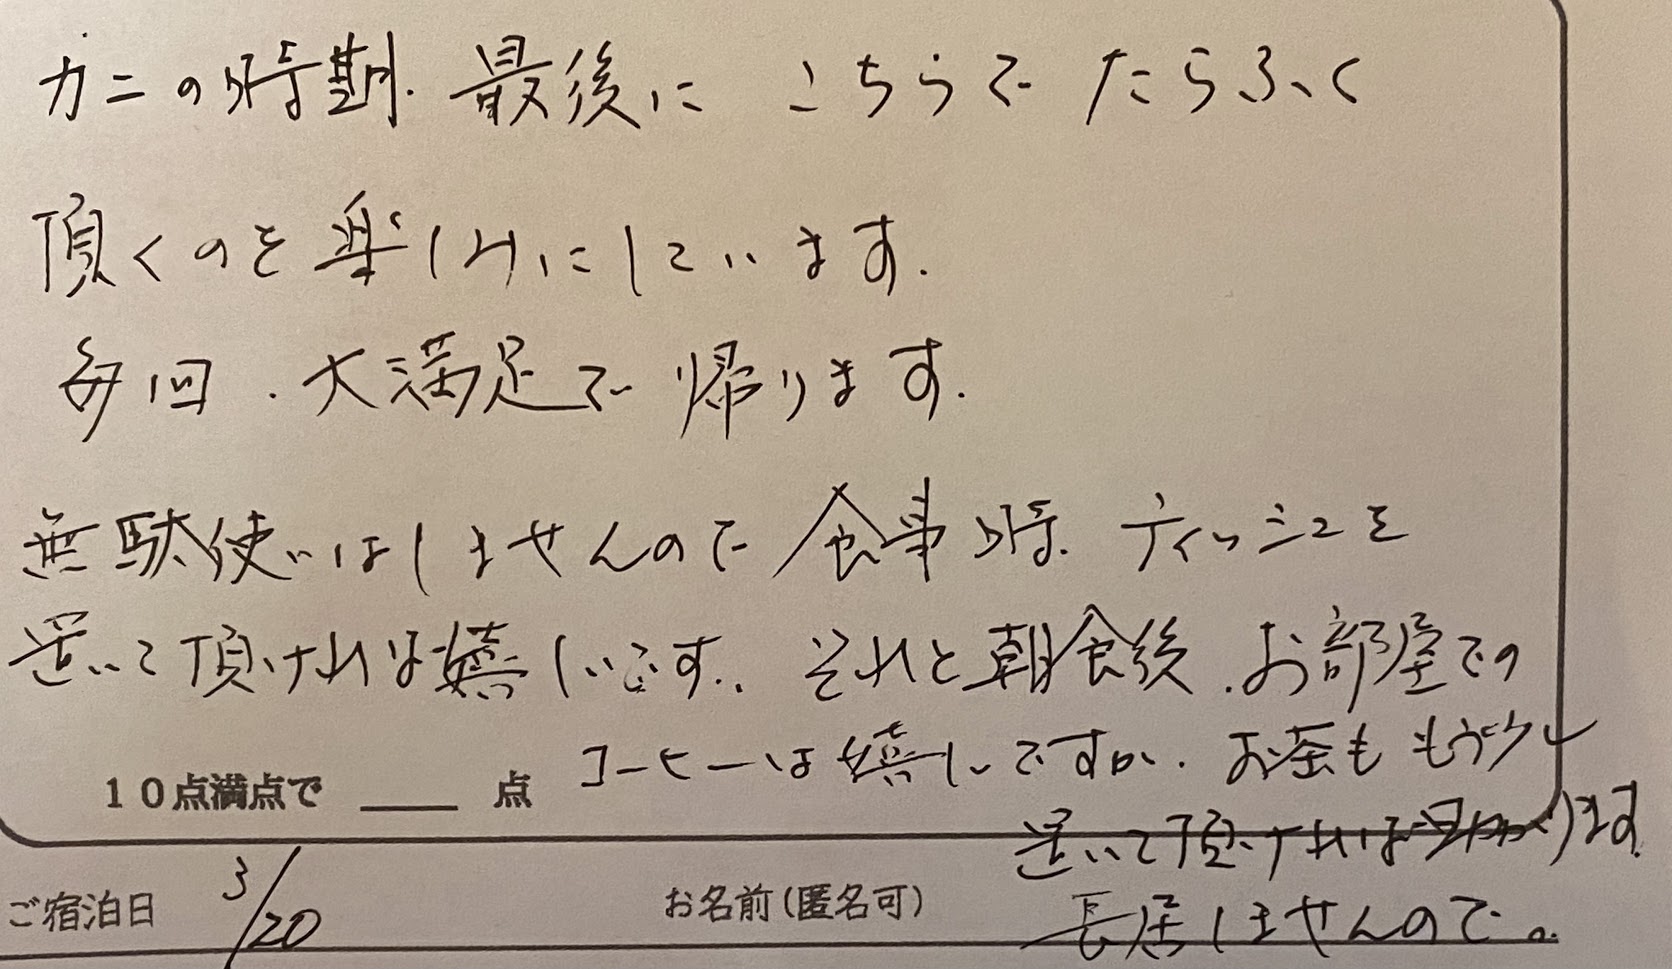 カニの時期、最後に こちらで たらふく
頂くのを楽しみにしています.
毎回、大満足で帰ります.
無駄使いはしませんので食事時、ティッシュを
置いて頂ければ嬉しいです. それと朝食後、お部屋での
コーヒーは嬉しいですが、お茶ももう少し
10点満点で ____ 点
置いて頂ければ助かります.
長居しませんので。
ご宿泊日 3/20 お名前(匿名可)